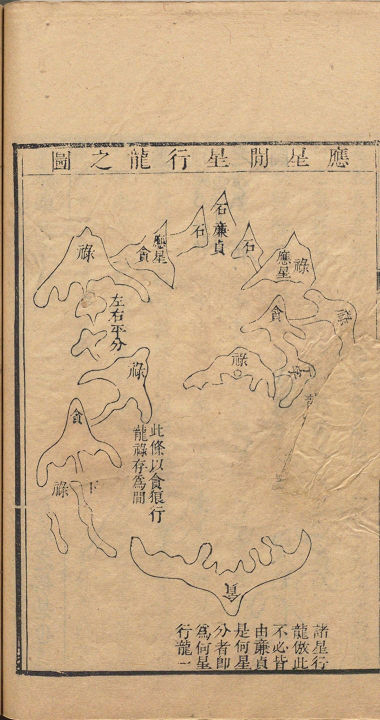 應星閒星行龍之圖
石廉貞
石
石
祿
應星
應星
貪
祿
祿
貪
祿
左右平分
祿
貪
祿
下
此條以貪狼行
龍祿存爲間
貪
諸星行
龍倣此
不必皆
由廉貞
是何星
分者即
爲何星
行龍一